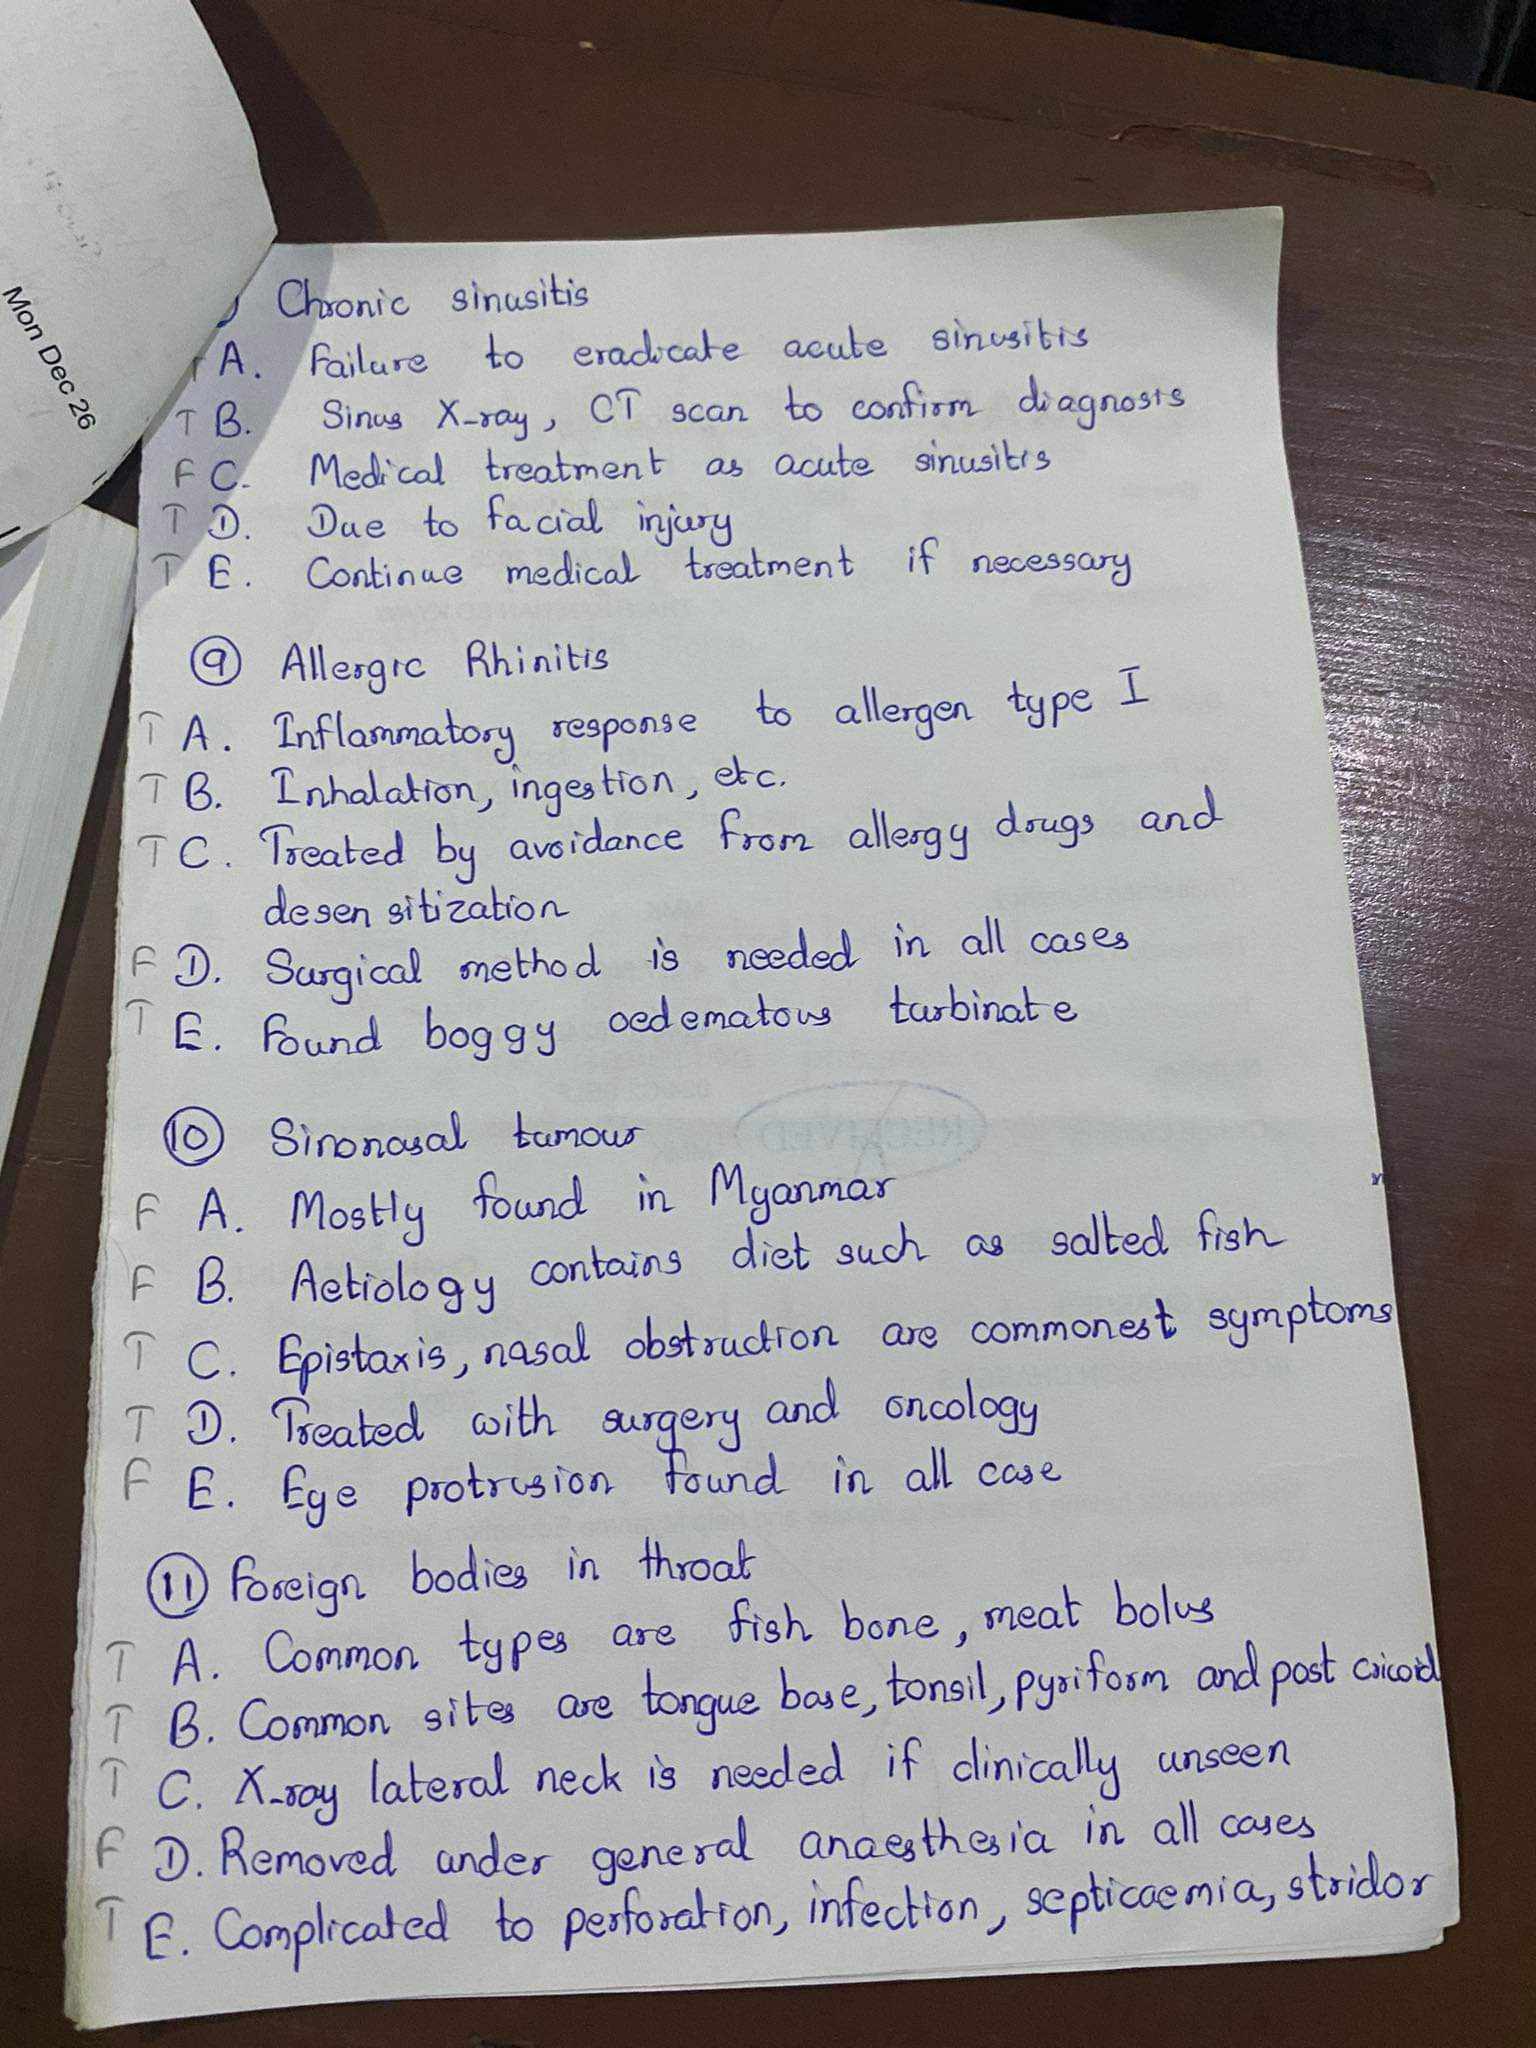 Mon Dec 26
) Chronic sinusitis
T A. Failure to eradicate acute sinusitis
T B. Sinus X-ray, CT scan to confirm diagnosis
F C. Medical treatment as acute sinusitis
T D. Due to facial injury
T E. Continue medical treatment if necessary
⑨ Allergic Rhinitis
T A. Inflammatory response to allergen type I
T B. Inhalation, ingestion, etc.
T C. Treated by avoidance from allergy drugs and
desensitization
F D. Surgical method is needed in all cases
T E. Found boggy oedematous turbinate
⑩ Sinonasal tumour
F A. Mostly found in Myanmar
F B. Aetiology contains diet such as salted fish
T C. Epistaxis, nasal obstruction are commonest symptoms
T D. Treated with surgery and oncology
F E. Eye protrusion found in all case
⑪ Foreign bodies in throat
T A. Common types are fish bone, meat bolus
T B. Common sites are tongue base, tonsil, pyriform and post cricoid
T C. X-ray lateral neck is needed if clinically unseen
F D. Removed under general anaesthesia in all cases
T E. Complicated to perforation, infection, septicaemia, stridor